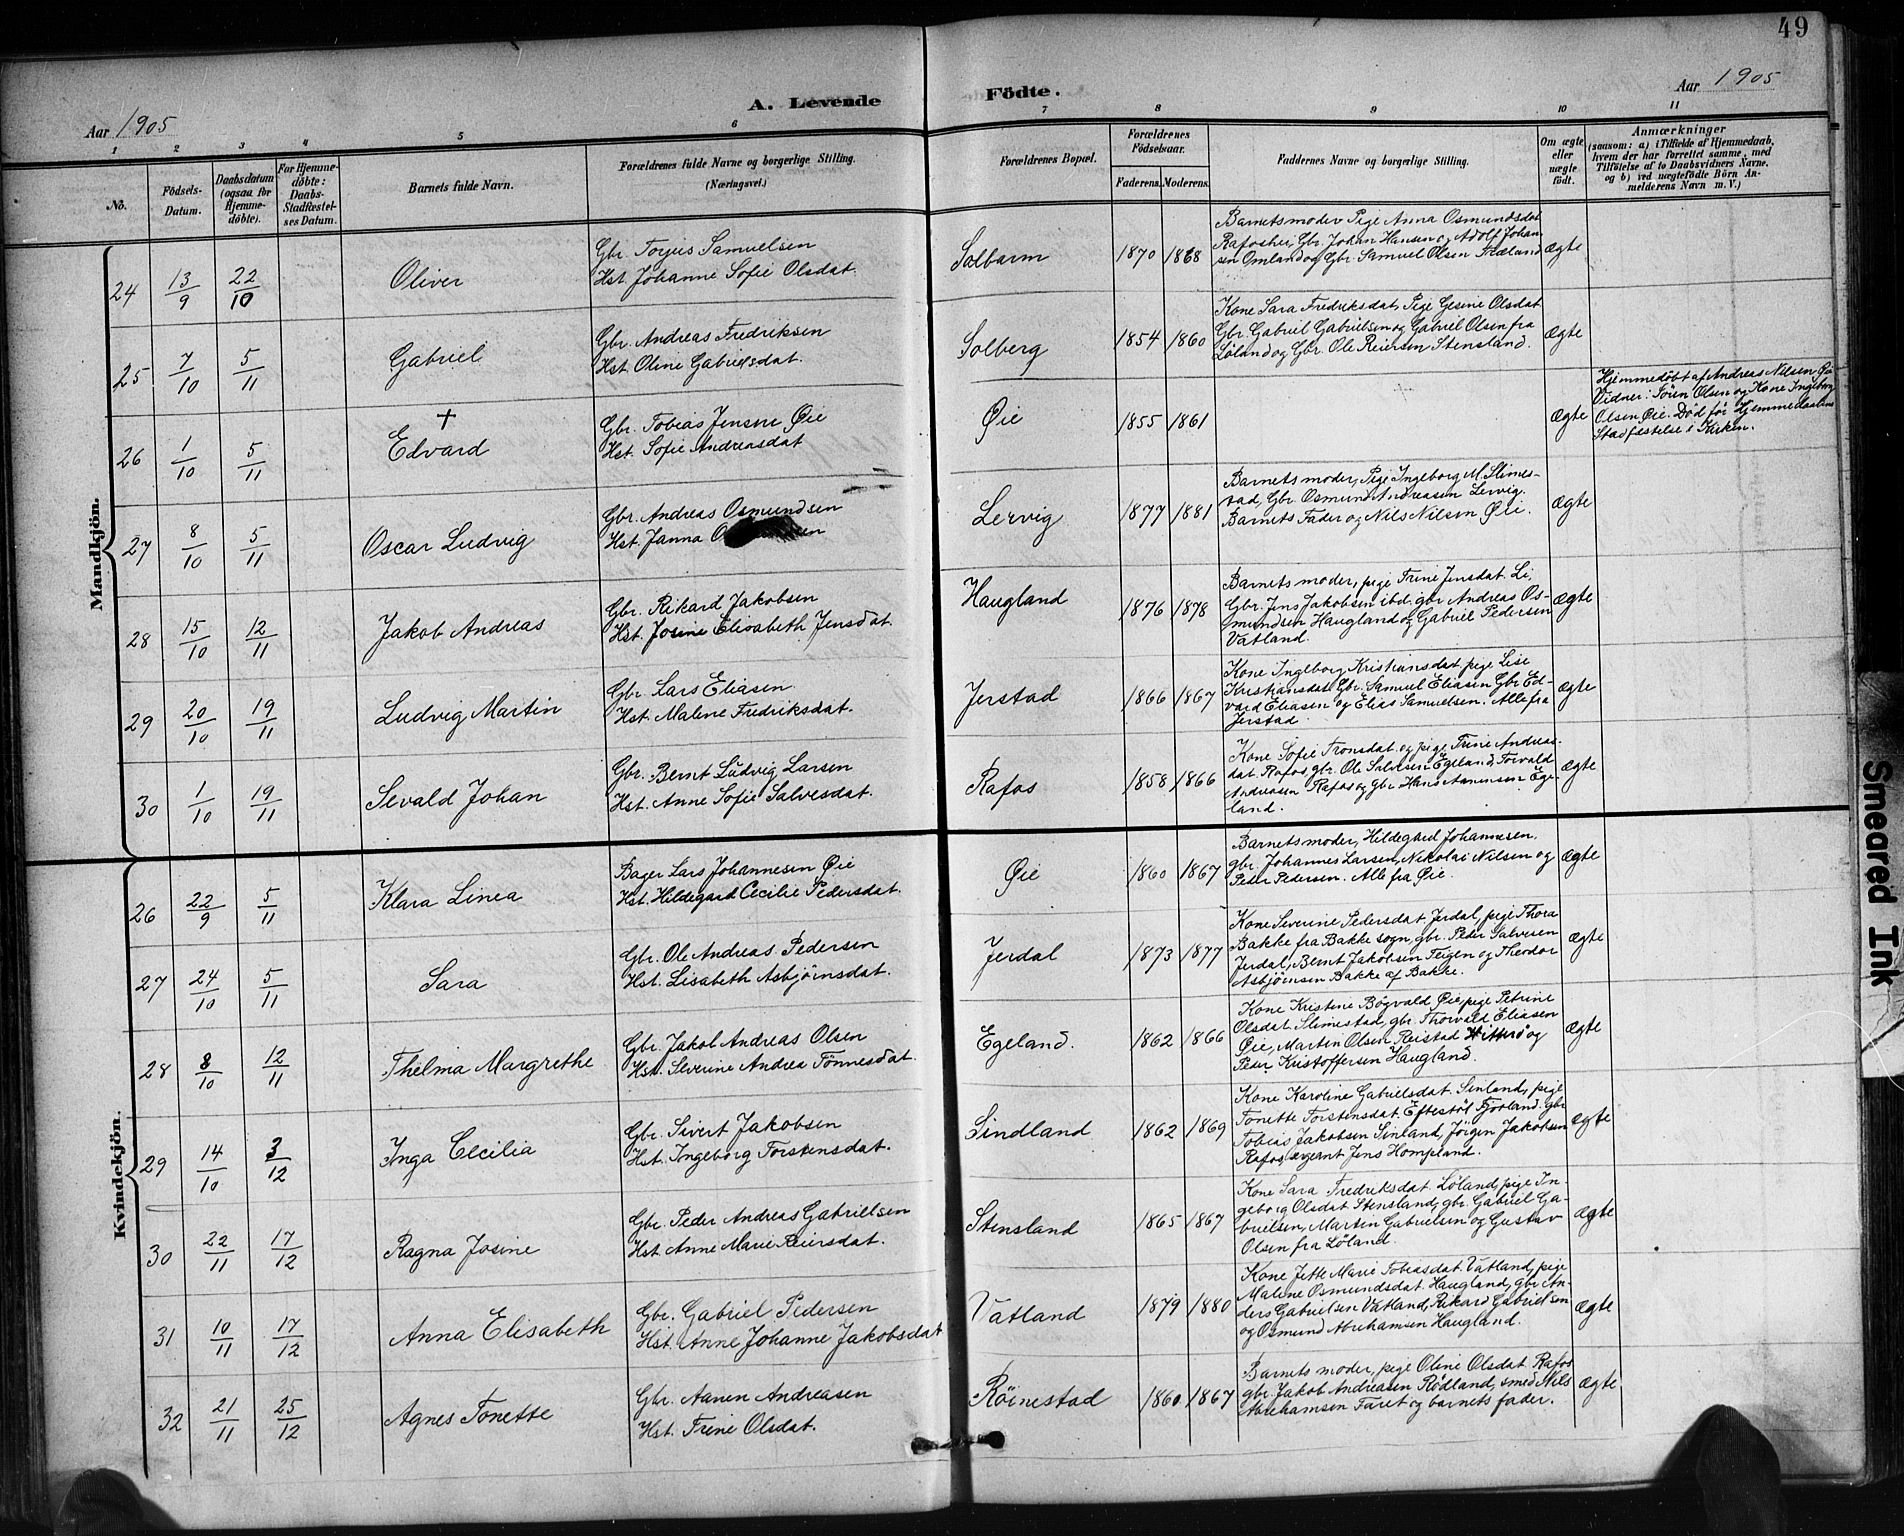 49
A. Levende Födte.
Aar 1905
Aar 1905
1 2 3 4 5 6 7 8 9 10 11
No.
Födsels-
Datum.
Daabsdatum
(ogsaa for
Hjemme-
döbte).
For Hjemme-
döbte:
Daabs-
Stadfæstel-
ses Datum.
Barnets fulde Navn.
Forældrenes fulde Navne og borgerlige Stilling.
(Næringsvei.)
Forældrenes Bopæl.
Forældrenes
Födselsaar.
Faderens. Moderens.
Faddernes Navne og borgerlige Stilling.
Om ægte
eller
uægte
födt.
Anmærkninger
(saasom: a) i Tilfælde af Hjemmedaab,
hvem der har forrettet samme, med
Tilföielse af to Daabsvidners Navne.
og b) ved uægtefödte Börn An-
melderens Navn m. V.)
Mandkjön.
24 13/9 22/10 Oliver
Gbr. Torjus Samuelsen
Hst. Johanne Sofie Olsdat.
Solbarm 1870 1868
Barnets moder Pige Anna Osmundsdat
Rafoshei, Gbr. Johan Hansen og Adolf Johan-
sen Omland og Gbr. Samuel Olsen Træland
Ægte
25 7/10 5/11 Gabriel
Gbr. Andreas Fredriksen
Hst. Oline Gabrielsdat.
Solberg 1854 1860
Kone Sara Fredriksdat, Pige Gesine Olsdat
Gbr. Gabriel Gabrielsen og Gabriel Olsen fra
Löland og Gbr. Ole Reiersen Stensland.
Ægte
26 1/10 5/11 + Edvard
Gbr. Tobias Jensen Øie
Hst. Sofie Andreasdat
Øie 1855 1861
Ægte
Hjemmedöbt af Andreas Nilsen Øie
Vidner: Sören Olsen og Kone Ingeborg
Olsen Øie. Död för Hjemmedaabens
Stadfestelse i Kirken.
27 8/10 5/11 Oscar Ludvig
Gbr. Andreas Osmundsen
Hst. Janna
Lervig 1877 1881
Barnets moder, Pige Ingeborg M. Slimes-
tad, Gbr. Osmund Andreasen Lervig.
Barnets Fader og Nils Nilsen Øie.
Ægte
28 15/10 12/11 Jakob Andreas
Gbr. Rikard Jakobsen
Hst. Josine Elisabeth Jensdat.
Haugland 1876 1878
Barnets moder, pige Trine Jensdat Li,
Gbr. Jens Jakobsen ibd. gbr Andreas Os-
mundsen Haugland og Gabriel Pedersen
Vatland.
Ægte
29 20/10 19/11 Ludvig Martin
Gbr. Lars Eliasen
Hst. Malene Fredriksdat.
Jerstad 1866 1867
Kone Ingeborg Kristiansdat, pige Lise
Kristiansdat Gbr. Samuel Eliasen Gbr Ed-
vard Eliasen og Elias Samuelsen. Alle fra
Jerstad.
Ægte
30 1/10 19/11 Sevald Johan
Gbr. Bernt Ludvig Larsen
Hst. Anne Sofie Salvesdat.
Rafos 1858 1866
Kone Sofie Tronsdat. og pige Trine Andreas-
dat. Rafos, gbr. Ole Salvesen Egeland, Torvald
Andreasen Rafos og gbr Hans Aanensen Ege-
land.
Ægte
Kvindekjön.
26 22/9 5/11 Klara Linea
Bager Lars Johannesen Øie
Hst. Hildegard Cecilie Pedersdat.
Øie 1860 1867
Barnets moder, Hildegard Johannesen,
gbr. Johannes Larsen, Nikolai Nilsen og
Peder Pedersen. Alle fra Øie.
Ægte
27 24/10 5/11 Sara
Gbr. Ole Andreas Pedersen
Hst. Lisabeth Asbjörnsdat.
Jerdal 1873 1877
Kone Severine Pedersdat. Jerdal, pige Thora
Bakke fra Bakke sogn, gbr. Peder Salvesen
Jerdal, Bernt Jakobsen Teigen og Theodor
Asbjörnsen Bakke af Bakke.
Ægte
28 8/10 12/11 Thelma Margrethe
Gbr. Jakob Andreas Olsen
Hst. Severine Andrea Tönnesdat.
Egeland. 1862 1866
Kone Kristine Bögvald Øie, pige Petrine
Olsdat Slimestad, gbr. Thorvald Eliasen
Øie, Martin Olsen Reistad Hitterö og
Peder Kristoffersen Haugland.
Ægte
29 14/10 3/12 Inga Cecilia
Gbr. Sivert Jakobsen
Hst. Ingeborg Torstensdat.
Sindland 1862 1869
Kone Karoline Gabrielsdat. Sinland, pige
Tonette Torstensdat. Eftestöl Fjotland. gbr
Tobias Jakobsen Sinland, Jörgen Jakobsen
Rafos, sergeant Jens Hompland.
Ægte
30 22/11 17/12 Ragna Josine
Gbr. Peder Andreas Gabrielsen
Hst. Anne Marie Reiersdat.
Stensland 1865 1867
Kone Sara Fredriksdat. Löland, pige In-
geborg Olsdat Stensland, gbr. Gabriel Ga-
brielsen, Martin Gabrielsen og Gustav
Olsen fra Löland.
Ægte
31 10/11 17/12 Anna Elisabeth
Gbr. Gabriel Pedersen
Hst. Anne Johanne Jakobsdat
Vatland 1879 1880
Kone Jette Marie Tobiasdat. Vatland, pige
Malene Osmundsdat. Haugland, gbr. An-
ders Gabrielsen Vatland, Rikard Gabrielsen
og Osmund Abrehamsen Haugland.
Ægte
32 21/11 25/12 Agnes Tonette
Gbr. Aanen Andreasen
Hst. Trine Olsdat.
Röinestad 1860 1867
Barnets moder, pige Oline Olsdat. Rafos
gbr. Jakob Andreasen Rödland, smed Nils
Abrehamsen Faret og barnets fader.
Ægte
Smeared Ink